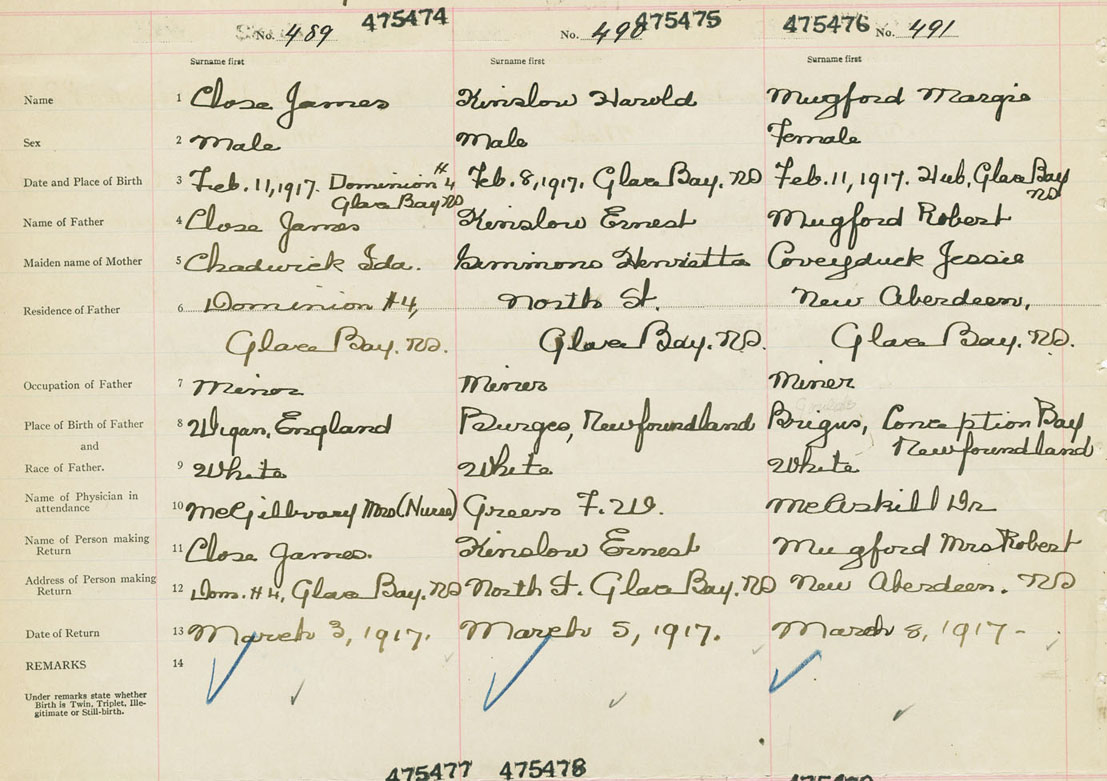 475474 475475 475476
No. 489 No. 490 No. 491
Surname first Surname first Surname first
Name 1 Close James Kinslow Harold Mugford Margie
Sex 2 Male Male Female
Date and Place of Birth 3 Feb. 11, 1917. Dominion #4 Feb. 8, 1917. Glace Bay. NS Feb. 11, 1917. Hub, Glace Bay
Glace Bay NS NS
Name of Father 4 Close James Kinslow Ernest Mugford Robert
Maiden name of Mother 5 Chadwick Ida. Simmons Henrietta Coveyduck Jessie
Residence of Father 6 Dominion #4, North St. New Aberdeen,
Glace Bay. NS. Glace Bay. NS. Glace Bay. NS.
Occupation of Father 7 Miner Miner Miner
Place of Birth of Father 8 Wigan, England Burgeo, Newfoundland Brigus, Conception Bay
and Newfoundland
Race of Father. 9 White White White
Name of Physician in
attendance 10 McGillvary Mrs (Nurse) Greens F. W. McAskill Dr
Name of Person making
Return 11 Close James. Kinslow Ernest Mugford Mrs Robert
Address of Person making
Return 12 Dom. #4, Glace Bay. NS North St. Glace Bay. NS New Aberdeen. NS
Date of Return 13 March 3, 1917. March 5, 1917. March 8, 1917-
REMARKS 14
Under remarks state whether
Birth is Twin, Triplet, Ille-
gitimate or Still-birth.
475477 475478